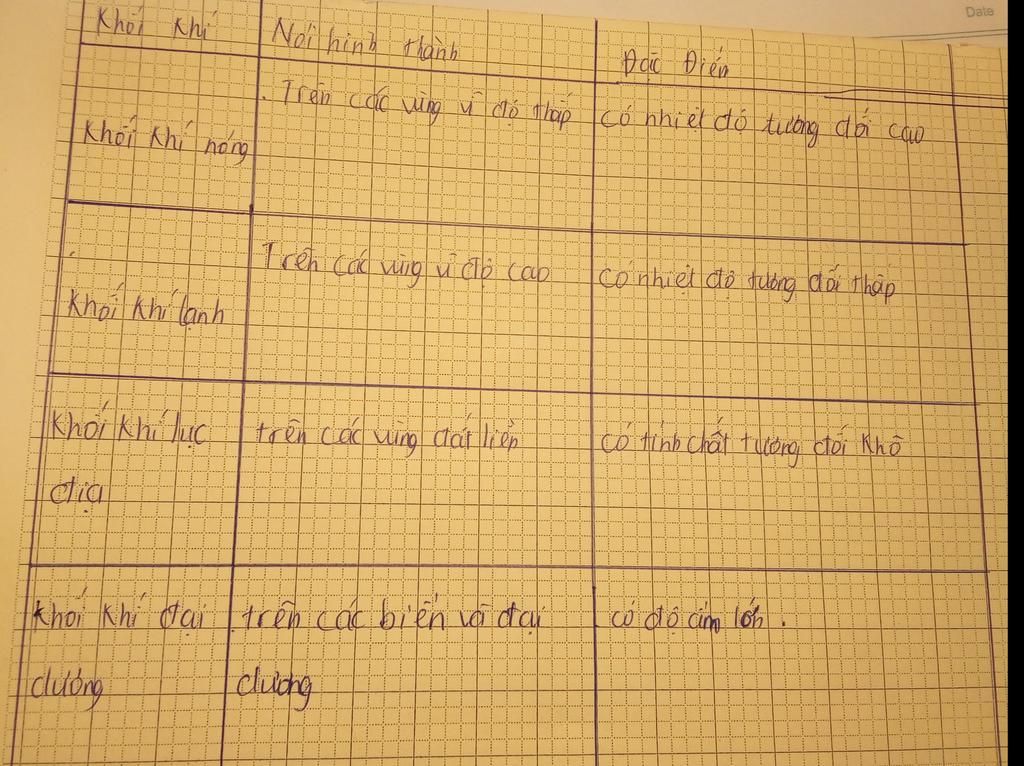 Date
Khối Khí
Nơi hình thành
Đặc Điểm
Khối Khí nóng
. Trên các vùng vĩ độ thấp
có nhiệt độ tương đối cao
Khối Khí lạnh
Trên các vùng vĩ độ cao
có nhiệt độ tương đối thấp
Khối Khí lục
địa
trên các vùng đất liền
có tính chất tương đối Khô
Khối Khí đại
dương
trên các biển và đại
dương
có độ ẩm lớn .